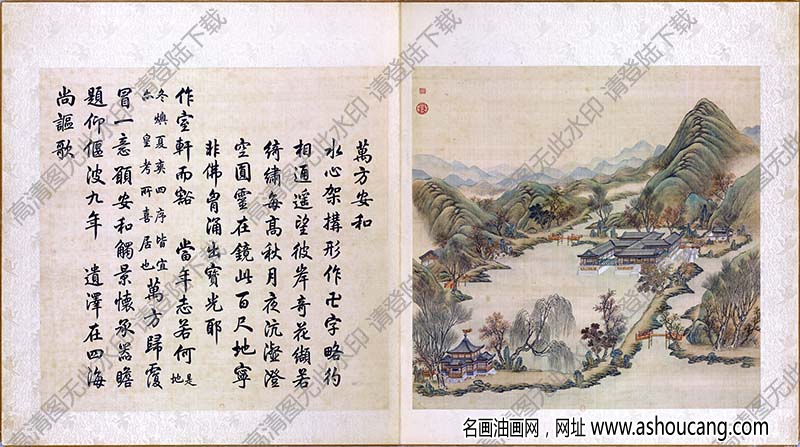 萬方安和
水心架搆形作卍字略彴
相通遥望彼岸奇花纈若
綺繡每高秋月夜沆瀣澄
空圓靈在鏡此百尺地寧
非佛胷涌出寶光耶
作室軒而豁 當年志若何是地
冬燠夏爽四序皆宜亦 皇考所喜居也萬方歸覆
冒一意願安和觸景懷承器瞻
題仰偃波九年 遺澤在四海
尚謳歌
高清图无此水印 请登陆下载
名画油画网，网址 www.ashoucang.com